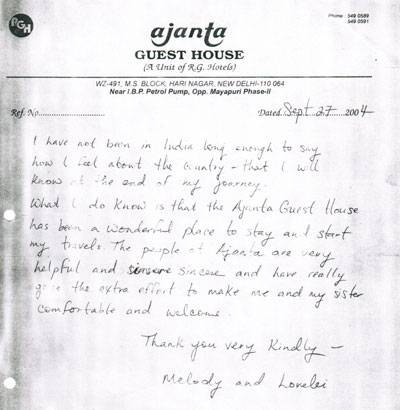 RGH
Phone : 549 0589
549 0591
ajanta
GUEST HOUSE
(A Unit of R.G. Hotels)
WZ-491, M.S. BLOCK, HARI NAGAR, NEW DELHI-110 064
Near I.B.P. Petrol Pump, Opp. Mayapuri Phase-II
Ref. No. Dated Sept. 27 2004
I have not been in India long enough to say
how I feel about the country - that I will
know at the end of my journey.
What I do know is that the Ajanta Guest House
has been a wonderful place to stay and start
my travels. The people at Ajanta are very
helpful and sincere and have really
gone the extra effort to make me and my sister
comfortable and welcome.
Thank you very Kindly -
Melody and Lorelei